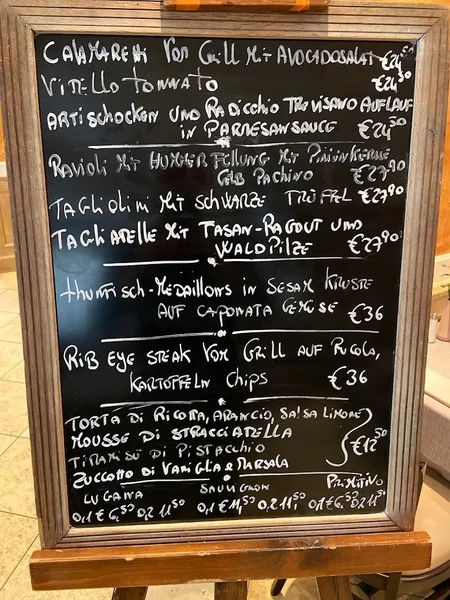 CALAMARETTI VOM GRILL MIT AVOCADOSALAT €24,50
VITELLO TONNATO €24,50
ARTISCHOCKEN UND RADICCHIO TREVISANO AUFLAUF
IN PARMESANSAUCE €24,50
RAVIOLI MIT HUMMER FÜLLUNG MIT PINIENKERNE
GELB PACHINO €27,90
TAGLIOLINI MIT SCHWARZE TRÜFFEL €27,90
TAGLIATELLE MIT FASAN-RAGOUT UND
WALDPILZE €27,90
THUNFISCH-MEDAILLONS IN SESAM KRUSTE
AUF CAPONATA GEMÜSE €36
RIB EYE STEAK VOM GRILL AUF RUCOLA,
KARTOFFELN CHIPS €36
TORTA DI RICOTTA, ARANCIO, SALSA LIMONE
MOUSSE DI STRACCIATELLA
TIRAMISÙ DI PISTACCHIO €12,50
ZUCCOTTO DI VANIGLIA E MARSALA
LUGANA SAUVIGNON PRIMITIVO
0,1 € 6,50 0,2 11,50 0,1 € 0,2 11,50 0,1 € 6,50 0,2 €11,50